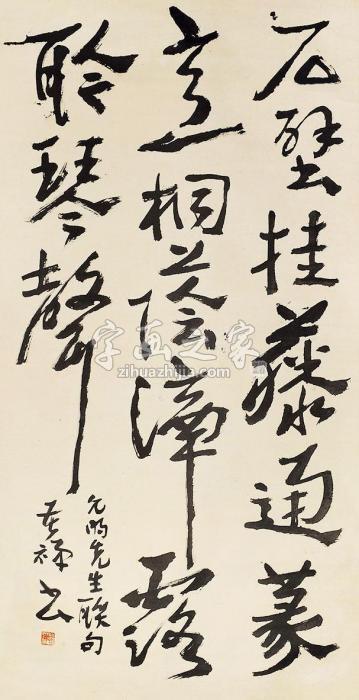 石壁挂藤通篆
意桐蔭滴露
聆琴聲
允明先生聯句
苦禅书
字画之家
zihuazhijia.com